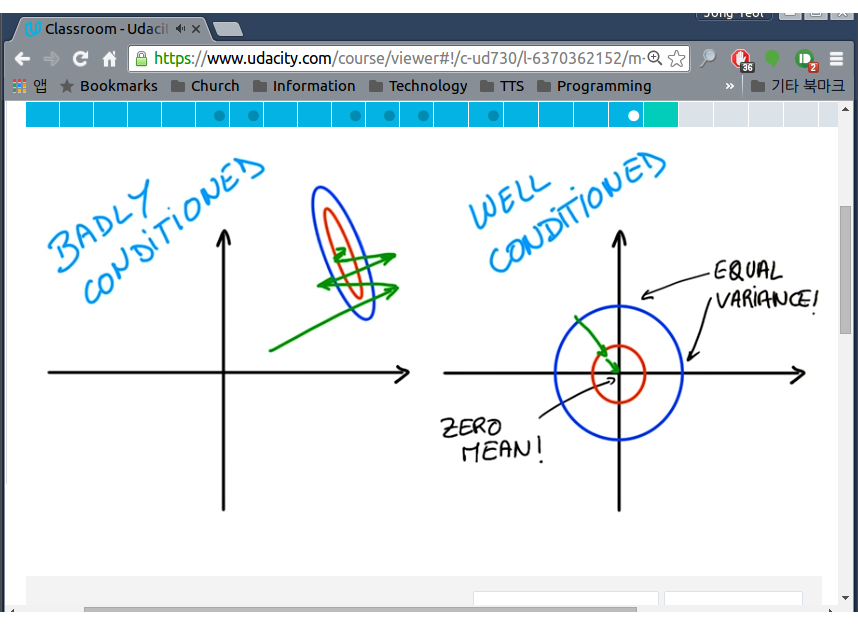 Jong Yeol
Classroom - Udaci
https://www.udacity.com/course/viewer#!/c-ud730/l-6370362152/m-
36
2
앱 Bookmarks Church Information Technology TTS Programming » 기타 북마크
BADLY
CONDITIONED
WELL
CONDITIONED
EQUAL
VARIANCE!
ZERO
MEAN!